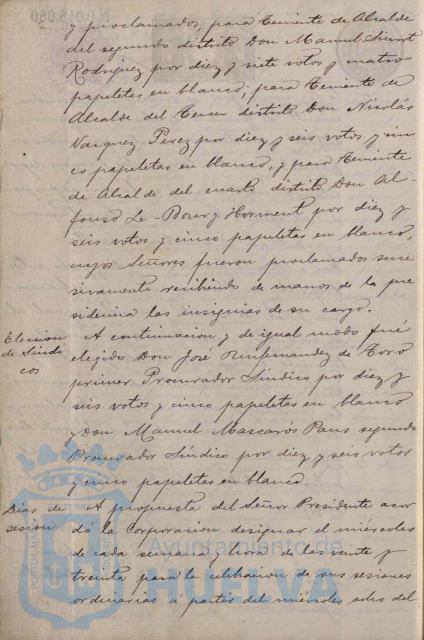 y proclamado, para teniente de Alcalde
del segundo distrito Don Manuel
Rodriguez por diez y siete votos y cuatro
papeletas en blanco; para teniente de
Alcalde del tercer distrito Don Nicolás
Vazquez Perez por diez y seis votos y cin
co papeletas en blanco, y para teniente
de Alcalde del cuarto distrito Don Al-
fonso Le-Bourg Horment por diez y
seis votos y cinco papeletas en blanco,
cuyos Señores fueron proclamados suce
sivamente recibiendo de manos de la pre
sidencia las insignias de su cargo.
Eleccion
de Sindi
cos
A continuacion y de igual modo fué
elegido Don José de Toro
primer Procurador Síndico por diez y
seis votos y cinco papeletas en blanco
y Don Manuel Mascarós Pans segundo
Procurador Síndico por diez y seis votos
y cinco papeletas en blanco.
Dias de
sesion
A propuesta del Señor Presidente acor
dó la corporacion designar el miércoles
de cada semana y hora de las veinte y
treinta para la celebracion de sus sesiones
ordinarias á partir del miércoles ocho del
Ayuntamiento de
HUELVA